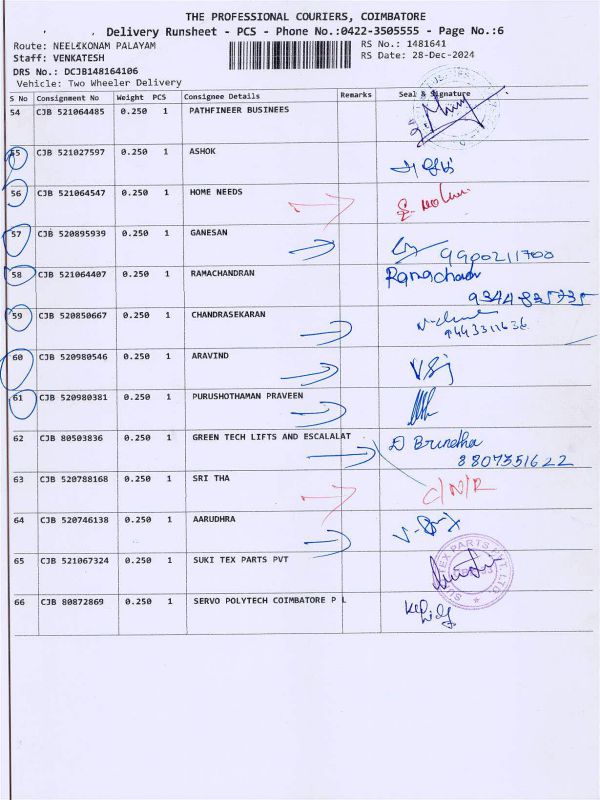 THE PROFESSIONAL COURIERS, COIMBATORE
Delivery Runsheet - PCS - Phone No.:0422-3505555 - Page No.:6
Route: NEELIKONAM PALAYAM RS No.: 1481641
Staff: VENKATESH RS Date: 28-Dec-2024
DRS No.: DCJB148164106
Vehicle: Two Wheeler Delivery
S No Consignment No Weight PCS Consignee Details Remarks Seal & Signature
54 CJB 521064485 0.250 1 PATHFINEER BUSINEES
55 CJB 521027597 0.250 1 ASHOK
56 CJB 521064547 0.250 1 HOME NEEDS
57 CJB 520895939 0.250 1 GANESAN 9900211700
58 CJB 521064407 0.250 1 RAMACHANDRAN Ramachandran
9344835735
59 CJB 520850667 0.250 1 CHANDRASEKARAN
9443311636
60 CJB 520980546 0.250 1 ARAVIND
61 CJB 520980381 0.250 1 PURUSHOTHAMAN PRAVEEN
62 CJB 80503836 0.250 1 GREEN TECH LIFTS AND ESCALALAT D Brindha
8807351622
63 CJB 520788168 0.250 1 SRI THA C/N/R
64 CJB 520746138 0.250 1 AARUDHRA
65 CJB 521067324 0.250 1 SUKI TEX PARTS PVT
66 CJB 80872869 0.250 1 SERVO POLYTECH COIMBATORE P L